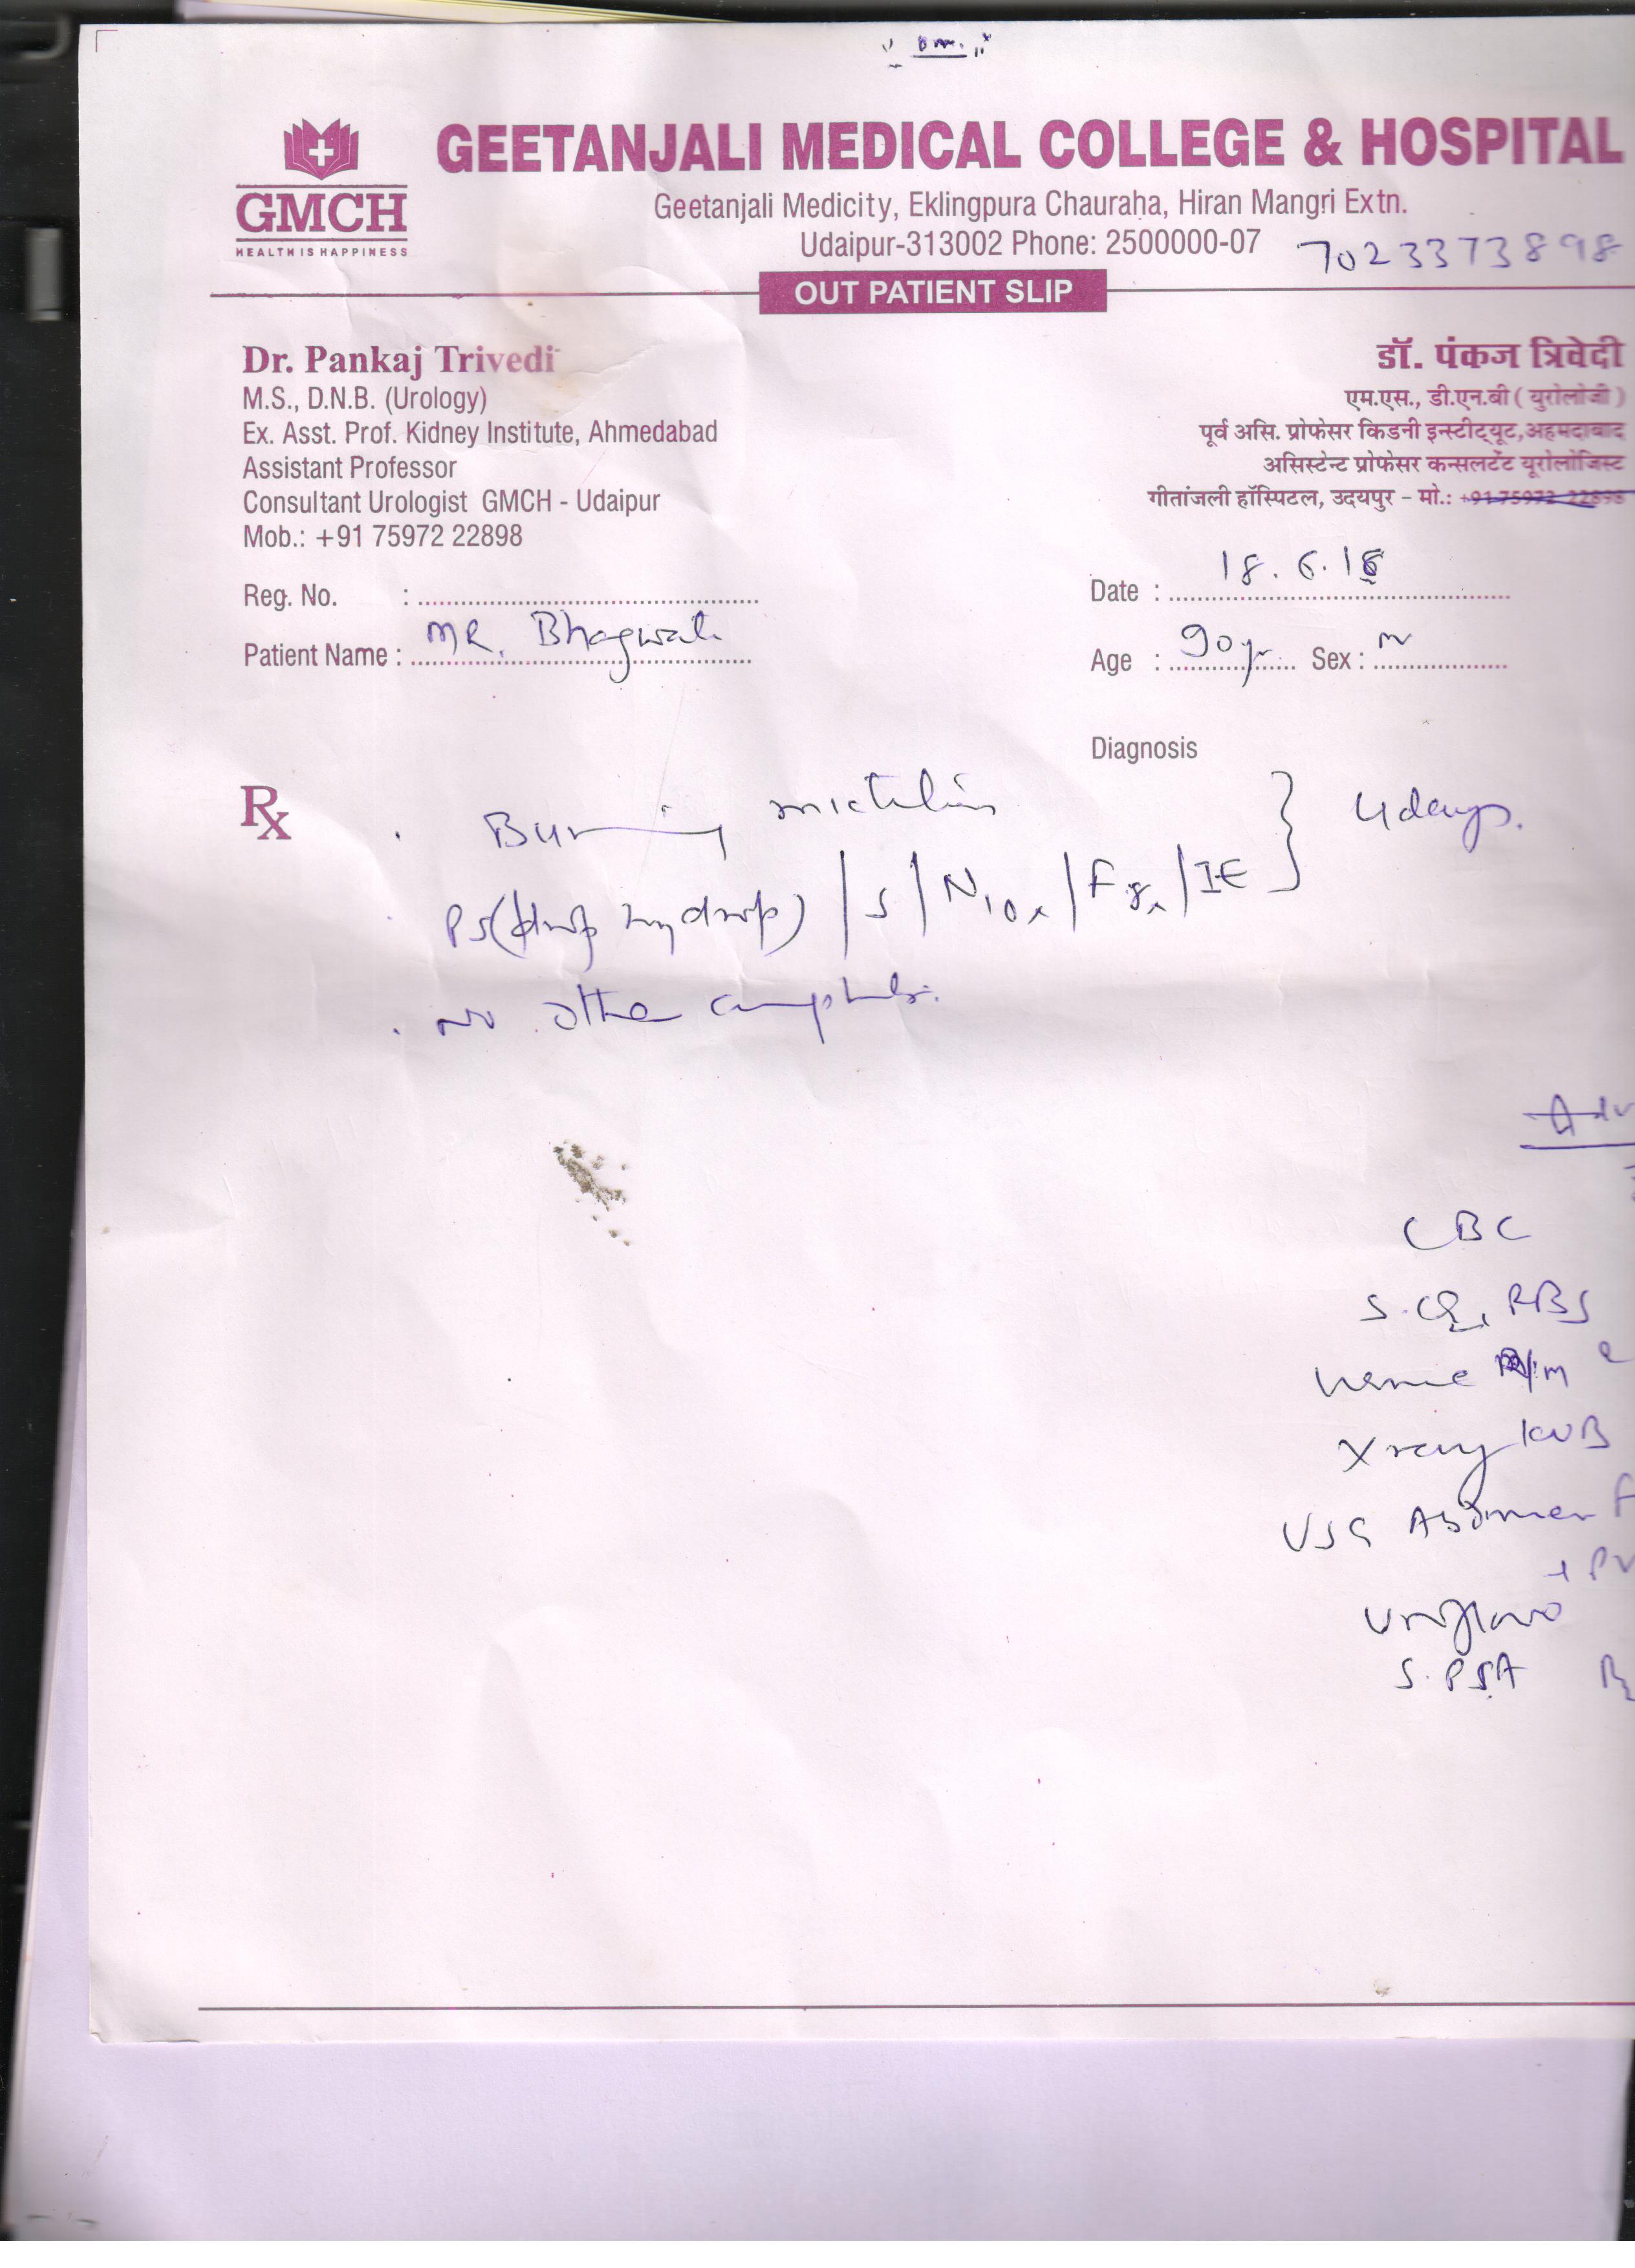 "Om"
GEETANJALI MEDICAL COLLEGE & HOSPITAL
GMCH
HEALTH IS HAPPINESS
Geetanjali Medicity, Eklingpura Chauraha, Hiran Mangri Extn.
Udaipur-313002 Phone: 2500000-07
7023373898
OUT PATIENT SLIP
Dr. Pankaj Trivedi
M.S., D.N.B. (Urology)
Ex. Asst. Prof. Kidney Institute, Ahmedabad
Assistant Professor
Consultant Urologist GMCH - Udaipur
Mob.: +91 75972 22898
डॉ. पंकज त्रिवेदी
एम.एस., डी.एन.बी ( युरोलोजी )
पूर्व असि. प्रोफेसर किडनी इन्स्टीट्यूट,अहमदाबाद
असिस्टेन्ट प्रोफेसर कन्सलटेंट यूरोलोजिस्ट
गीतांजली हॉस्पिटल, उदयपुर - मो.: +91 75972 22898
Reg. No. :
Date : 18.6.18
Patient Name : MR. Bhagwati
Age : 90yr Sex : M
Diagnosis
Rx
Burning micturition } 4 days.
/ S / N10x / F8x / IE
No other complaints.
Adv
CBC
S.Cr, RBS
Urine R/m
Xray KUB
USG Abdomen
Uroflow
S. PSA